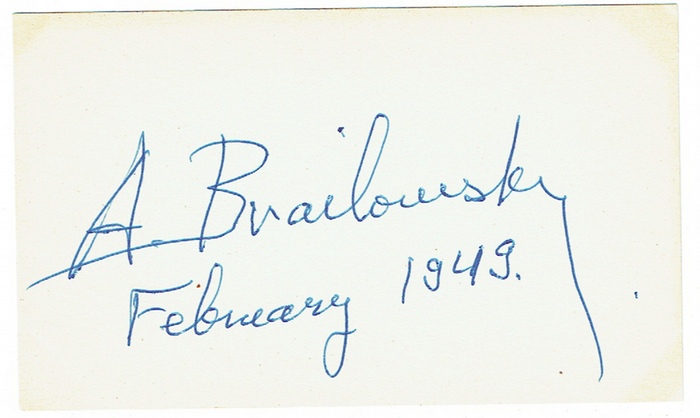 A. Brailowsky
February 1949.